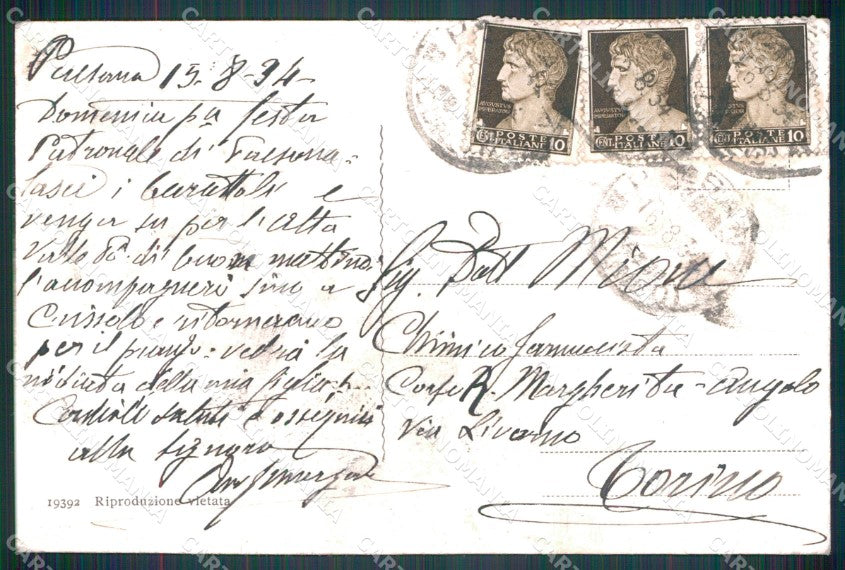 Paesana 15-8-34-
Domenica pa festa
Patronale di Paesana-
lasci i barattoli e
venga su per l'Alta
Valle Po di buon mattino
l'accompagnerò sino a
Crissolo e ritorneremo
per il pranzo - vedrà la
nidiata della mia figlia -
Cordiali saluti e ossequi
alla Signora
19392 Riproduzione vietata
AVGVSTVS IMPERATOR
CENT. POSTE ITALIANE 10
AVGVSTVS IMPERATOR
CENT. POSTE ITALIANE 10
CENT. POSTE ITALIANE 10
Sig. Dott Mione
Chimico farmacista
Corso R. Margherita - angolo
Via Livorno
Torino
CARTOLINOMANIA